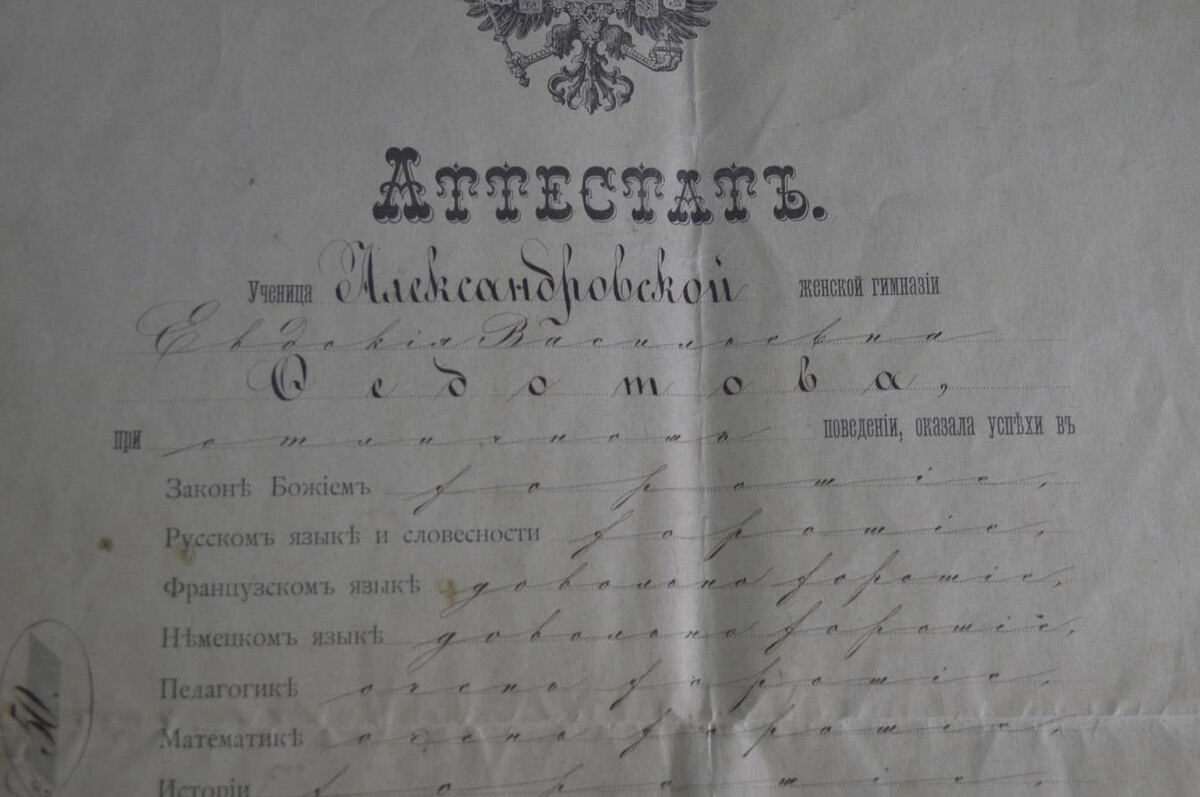 Аттестатъ.
Ученица Александровской женской гимназіи
Евдокія Васильевна
Ѳедотова,
при отличномъ поведеніи, оказала успѣхи въ
Законѣ Божіемъ хорошіе,
Русскомъ языкѣ и словесности хорошіе,
Французскомъ языкѣ довольно хорошіе,
Нѣмецкомъ языкѣ довольно хорошіе,
Педагогикѣ очень хорошіе,
Математикѣ очень хорошіе,
Исторіи хорошіе,